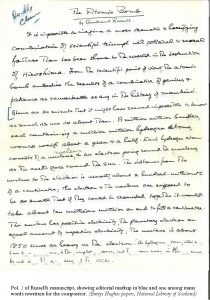 Double
Crown
The Atomic Bomb
by Bertrand Russell
It is impossible to imagine a more dramatic & horrifying
combination of scientific triumph with political & moral
failure than has been shown to the world in the destruction
of Hiroshima. From the scientific point of view the atomic
bomb embodies the results of a combination of genius &
patience as remarkable as any in the history of mankind.
Atoms are so minute that it might have seemed impossible to know
as much as we do about them. A million million bundles,
each containing a million million hydrogen atoms,
would weigh about a gram & a half. Each hydrogen atom
consists of a nucleus, & an electron going round the nucleus
as the earth goes round the sun. The distance from the
nucleus to the electron is usually about a hundred-millionth
of a centimetre; the electron & the nucleus are supposed to
be so small that if they could be crowded together it would
take about ten million million on end to fill a centimetre.
The nucleus has positive electricity, the planetary electron an
equal amount of negative electricity; the nucleus is about
1850 times as heavy as the electron. The hydrogen atom
Fol. 1 of Russell's manuscript, showing editorial markup in blue and one among many
words rewritten for the compositor. (Emrys Hughes papers, National Library of Scotland)